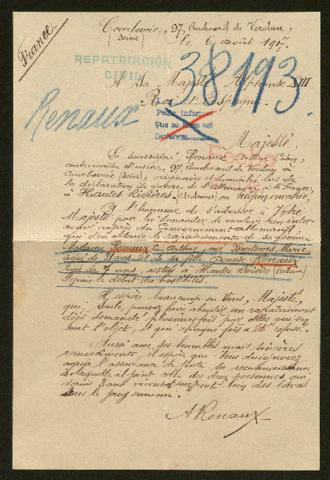 France
Courbevoie, 97, Boulevard de Verdun,
(Seine) le 6 août 1917
REPATRIACIÓN
CIVIL
38193
A Sa Majesté Alphonse XIII
Roi d'Espagne
Renaux
Pedir infor
Majesté,
Le soussigné, Renaux
contremaître d'usine, 97, Boulevard de Verdun à
Courbevoie (Seine), domicilié, lors de
la déclaration de guerre, de l'Allemagne à la France,
Hautes Rivières, (Ardennes) en
A l'honneur de s'adresser à Votre
Majesté pour lui demander de vouloir bien inter-
céder auprès du Gouvernement allemand
afin d'obtenir le rapatriement de sa femme
Madame Renaux, née Marie
âgée de ans et de sa fille Renaux
âgée de 7 ans, restées à Hautes Rivières (Ardennes)
depuis le début des hostilités.
Il espère beaucoup en Vous, Majesté,
qui, Seule, pouvez faire aboutir un rapatriement
déjà demandé plusieurs fois par elles qui en
sont l'objet, et qui chaque fois a été refusé.
Aussi avec ses humbles mais sincères
remerciements, il espère que Vous daignerez
agréer l'assurance de toute sa reconnaissance,
à laquelle il joint celle des deux personnes qui
depuis 3 ans vivent loin des leurs
sous le joug ennemi.
A Renaux